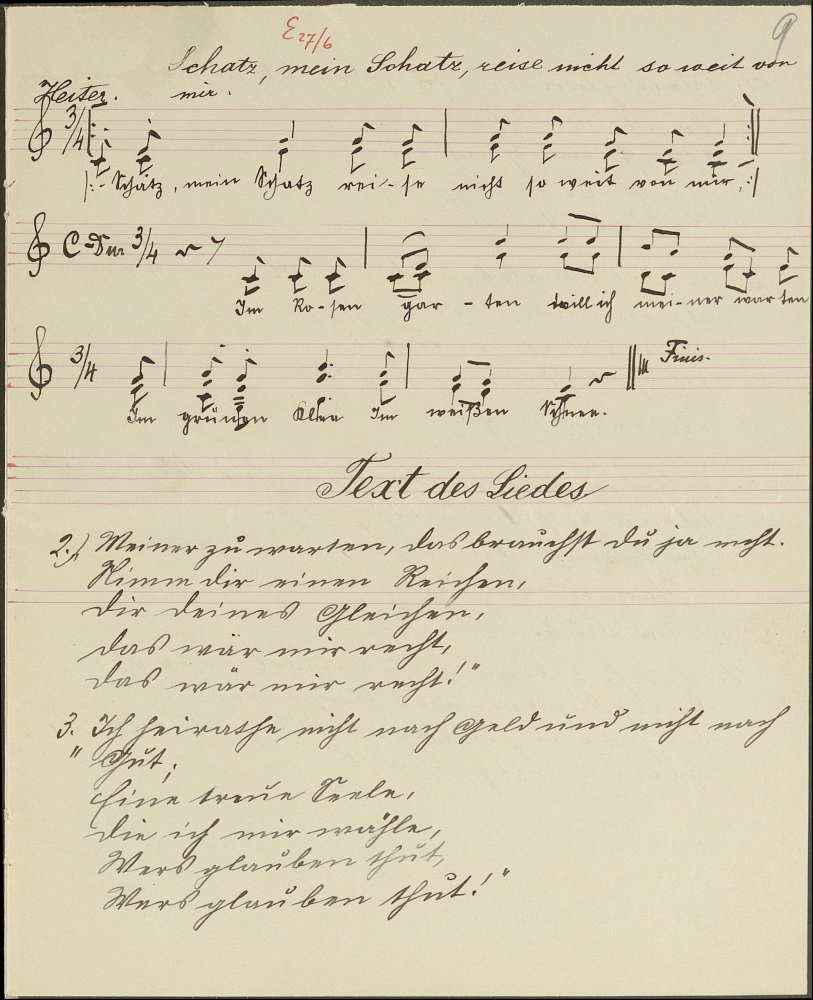 E 27/6
9
Schatz, mein Schatz, reise nicht so weit von
mir.
Heiter.
3/4
|:- Schatz, mein Schatz rei-se nicht so weit von mir, :|
C-Dur 3/4
Im Ro-sen gar-ten will ich mei-ner warten
3/4
Finis.
Im grünen Klee Im weißen Schnee.
Text des Liedes
2.) Meiner zu warten, das brauchst du ja nicht.
Nimm dir einen Reichen,
dir deines Gleichen,
das wär mir recht,
das wär mir recht!"
3. Ich heirathe nicht nach Geld und nicht nach
" Gut;
Eine treue Seele,
die ich mir wähle,
Wers glauben thut,
Wers glauben thut!"